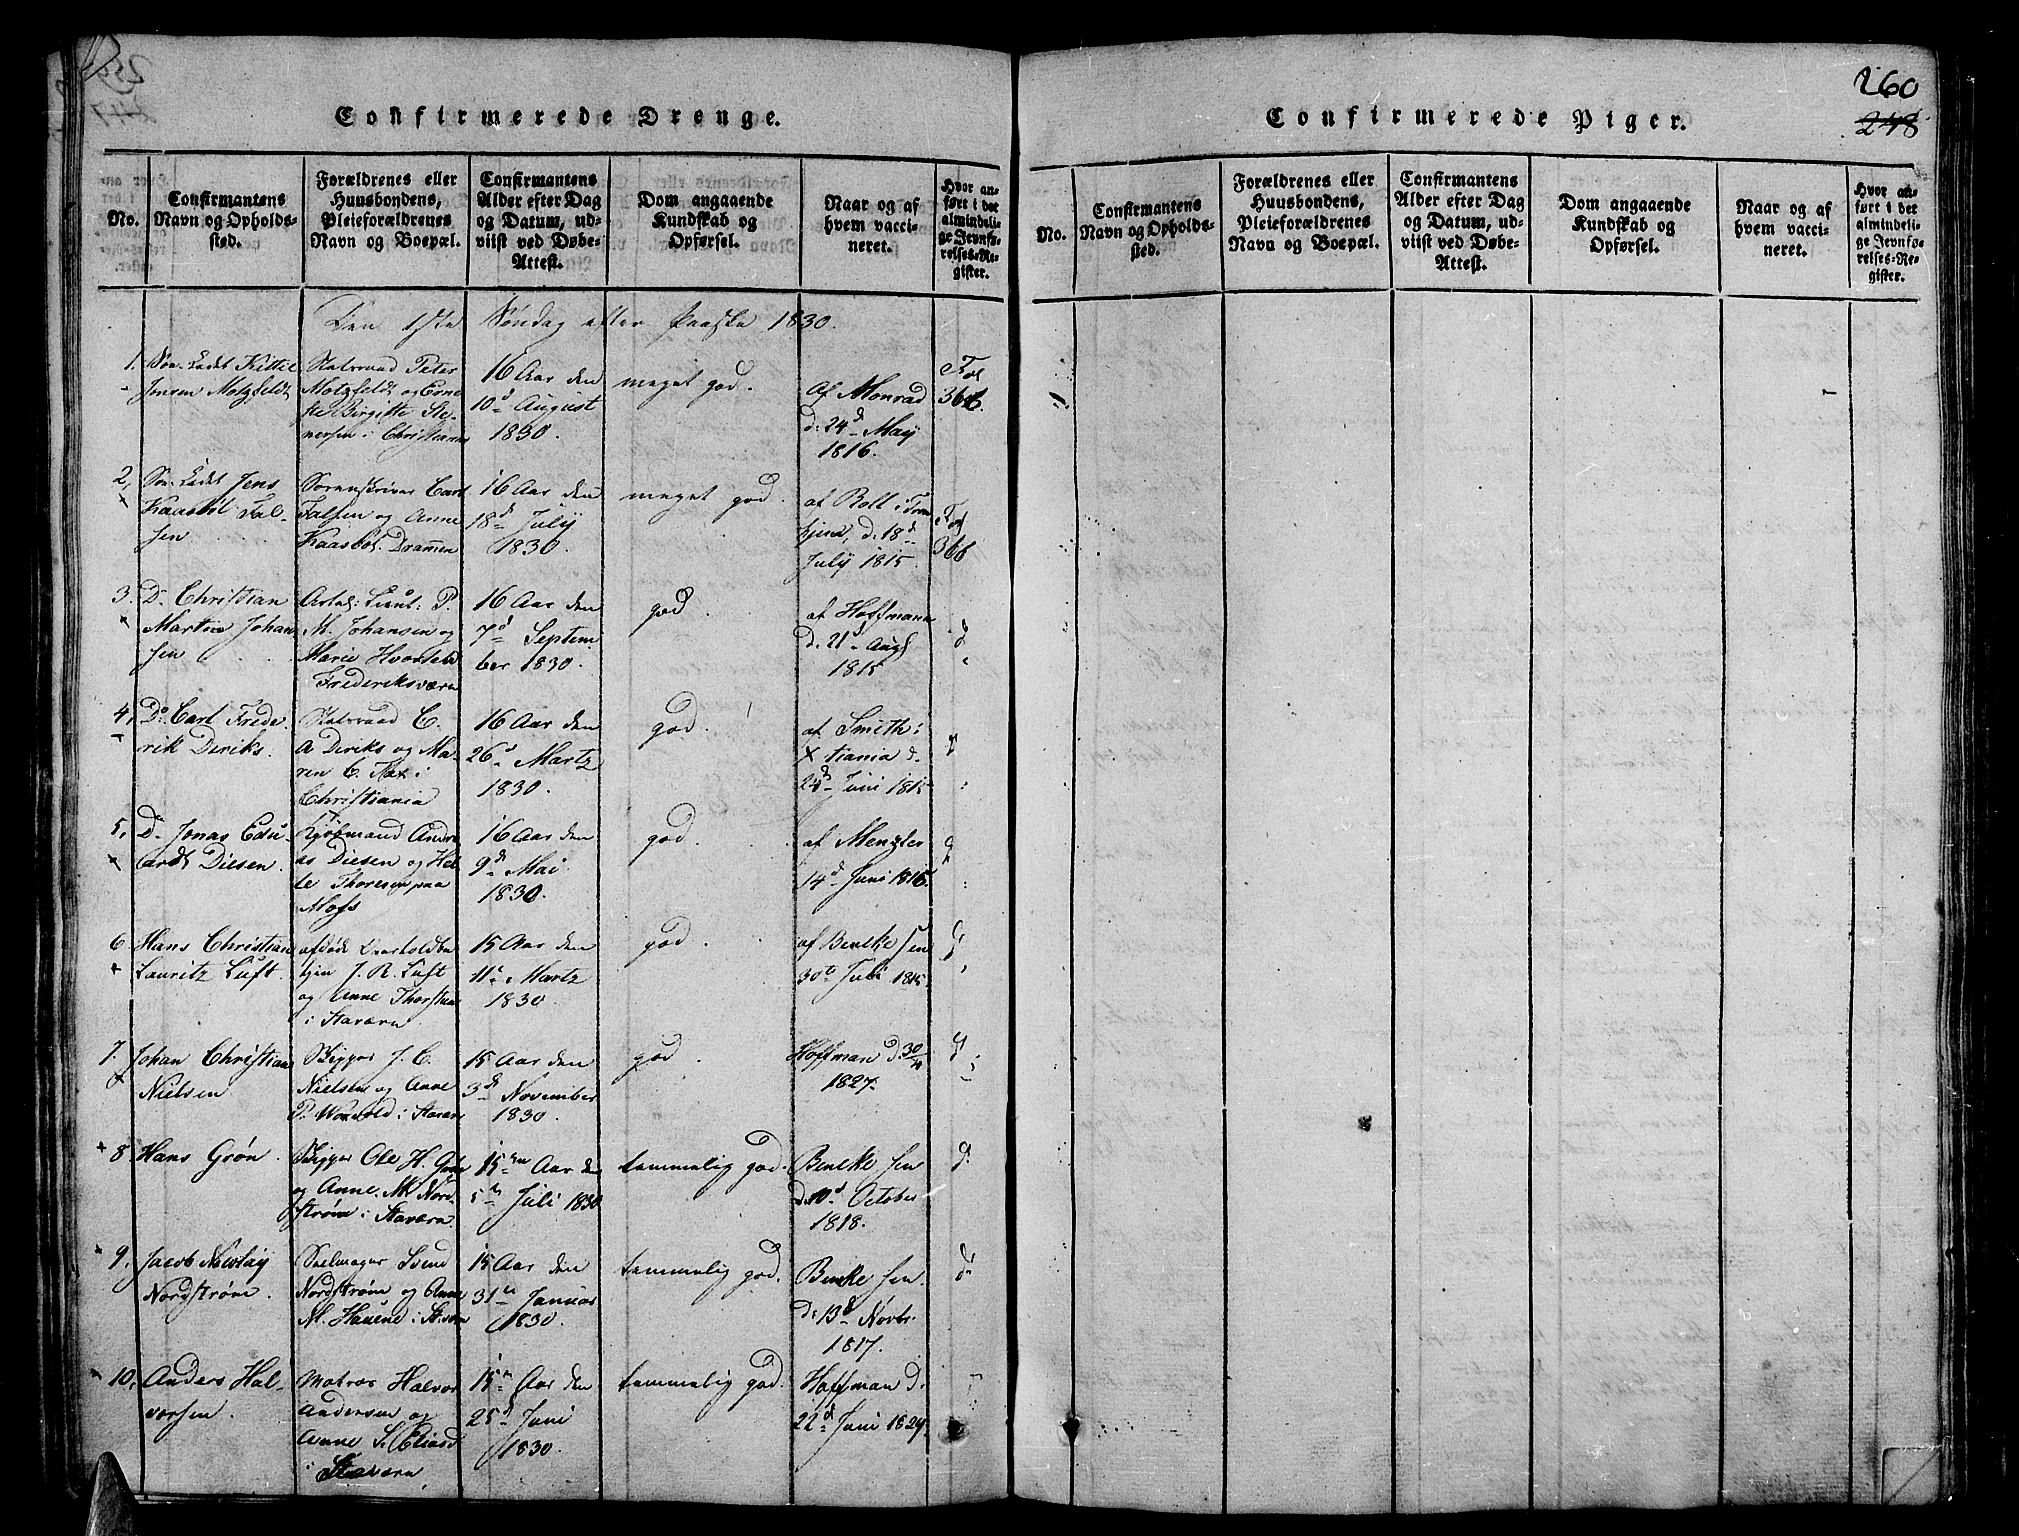 Confirmerede Drenge.
No.
Confirmantens
Navn og Opholds-
sted.
Forældrenes eller
Huusbondens,
Pleieforældrenes
Navn og Boepæl.
Confirmantens
Alder efter Dag
og Datum, ud-
viist ved Døbe-
Attest.
Dom angaaende
Kundskab og
Opførsel.
Naar og af
hvem vacci-
neret.
Hvor an-
ført i det
almindeli-
ge Jevnfø-
relses-Re-
gister.
Den 1ste Søndag efter Paaske 1830.
1. Søe-Cadet Kittil
Jensen Motzfeldt
Statsraad Peter
Motzfeldt og Erne-
ste Birgitte Ste-
nersen i Christiania
16 Aar den
10d August
1830.
meget god.
Af Monrad
d: 24d May
1816.
Fol
366.
2, Søe-Cadet Jens
Kaasbøl Fal-
sen
Sorenskriver Carl
Falsen og Anne
Kaasbøl. Drammen
16 Aar den
18d July
1830.
meget god.
af Boll i Tron
hjem, d. 18d
July 1815.
Fol
366
3. Do Christian
Martin Johan
sen
Lieut: P.
M. Johansen og
Marie
Frederiksværn
16 Aar den
7d Septem
ber 1830.
god.
af Hoffmann
d. 21d Aug
1815
4, Do Carl Frede
rik Deriks.
Statsraad C.
A Deriks og Ma-
ren C. Rax i
Christiania
16 Aar den
26d Martz
1830.
god.
af Smith i
Xtiania d.
24d Juni 1815
5, Do Jonas Edu-
ardt Diesen.
Kjøbmand Andre
as Diesen og Hel-
le Thoresen paa
Moss
16 Aar den
9d Mai
1830.
god
af Menzler
14d Juni 1816.
6. Hans Christian
Lauritz Luft.
afdøde
J. R. Luft
og Anne Thorsten
i Staværn.
15 Aar den
11d Martz
1830.
god.
af Bencke sen
30te Juli 1815.
7. Johan Christian
Nielsen
Skipper J. C.
Nielsen og Anne
P. i Staværn
15 Aar den
3d November
1830.
god.
Hoffman d. 30/4
1827.
8. Hans Grøn.
Skipper Ole H. Grøn
og Anne. M. Nord-
strøm i Staværn.
15 Aar den
5te Juli 1830
temmelig god.
Bencke sen
d. 10d October
1818.
d:
9. Jacob Nicolay
Nordstrøm.
Seilmager Svend
Nordstrøm og Anne
M. Hauene i St:vern
15 Aar den
31te Januar
1830.
temmelig god.
Bencke sen.
d: 13d Novbr
1817.
d:
10, Anders Hal-
vorsen.
Matros Halvor
Andersen og
Anne S. Eliasd
i Staværn
15 Aar den
25d Juni
1830.
temmelig god
Hoffman d.
22d Juni 1829.
260
248
Confirmerede Piger.
No.
Confirmantens
Navn og Opholds-
sted.
Forældrenes eller
Huusbondens,
Pleieforældrenes
Navn og Boepæl.
Confirmantens
Alder efter Dag
og Datum, ud-
viist ved Døbe-
Attest.
Dom angaaende
Kundskab og
Opførsel.
Naar og af
hvem vacci-
neret.
Hvor an-
ført i det
almindeli-
ge Jevnfø-
relses-Re-
gister.